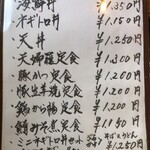 ・海鮮丼 ¥1.350円
・ネギトロ丼 ¥1.150円
・天丼 ¥1.250円
・天婦羅定食 ¥1.300円
・豚かつ定食 ¥1.200円
・豚生羊焼定食 ¥1.200円
・鶏から揚定食 ¥1.200円
・鯖みそ煮定食 ¥1.150円
・ミニネギトロ丼セット うどん ¥1.250円